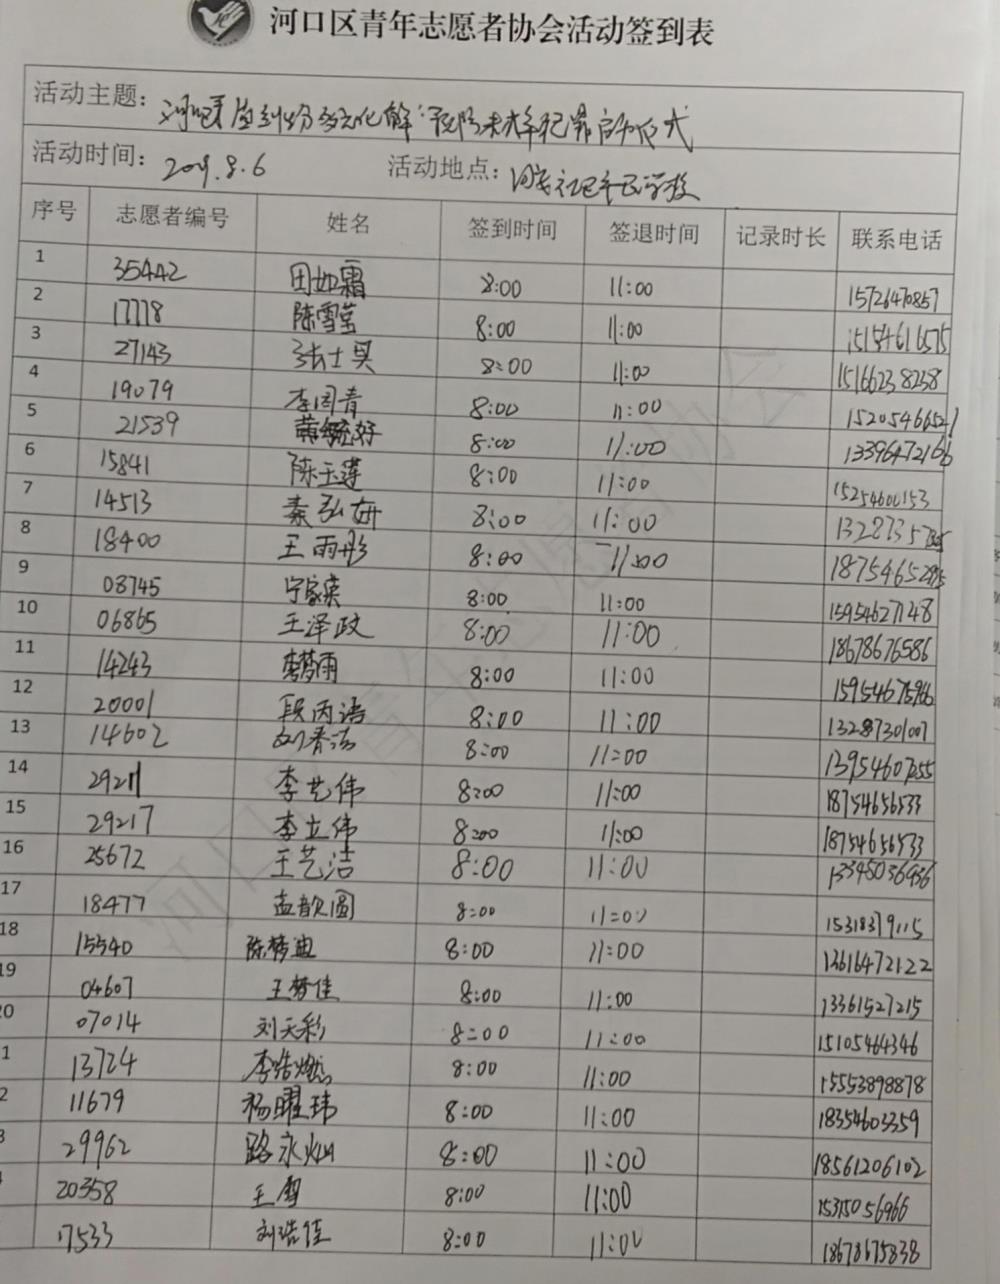 河口区青年志愿者协会活动签到表
活动主题：
活动时间： 2019.8.6 活动地点：
序号 志愿者编号 姓名 签到时间 签退时间 记录时长 联系电话
1 35442 田如霜 8:00 11:00 15726470857
2 17778 陈雪莹 8:00 11:00 15154616575
3 27143 8:00 11:00 15166238238
4 19079 李同青 8:00 11:00
5 21539 8:00 11:00 13396472166
6 15841 陈玉莲 8:00 11:00 15254600153
7 14513 秦弘妍 8:00 11:00
8 18400 王雨彤 8:00 11:00
9 08745 宁家荣 8:00 11:00 15954627148
10 06865 王泽政 8:00 11:00 18678676586
11 14243 李梦雨 8:00 11:00
12 20001 段丙语 8:00 11:00 13287301007
13 14602 8:00 11:00 13954607255
14 29211 李艺伟 8:00 11:00 18754656533
15 29217 李立伟 8:00 11:00 18754656533
16 25672 王艺洁 8:00 11:00
17 18477 孟歆圆 8:00 11:00 15318379115
18 15540 陈梦迪 8:00 11:00 13616472122
19 04607 王梦佳 8:00 11:00 13361527215
0 07014 刘天彩 8:00 11:00 15105464346
1 13724 李皓燃 8:00 11:00 15553898878
2 11679 杨曜玮 8:00 11:00 18354603359
3 29962 路永灿 8:00 11:00 18561206102
20358 王雪 8:00 11:00 15315056966
17533 刘浩佳 8:00 11:00 18678675838
河口区青年志愿者协会